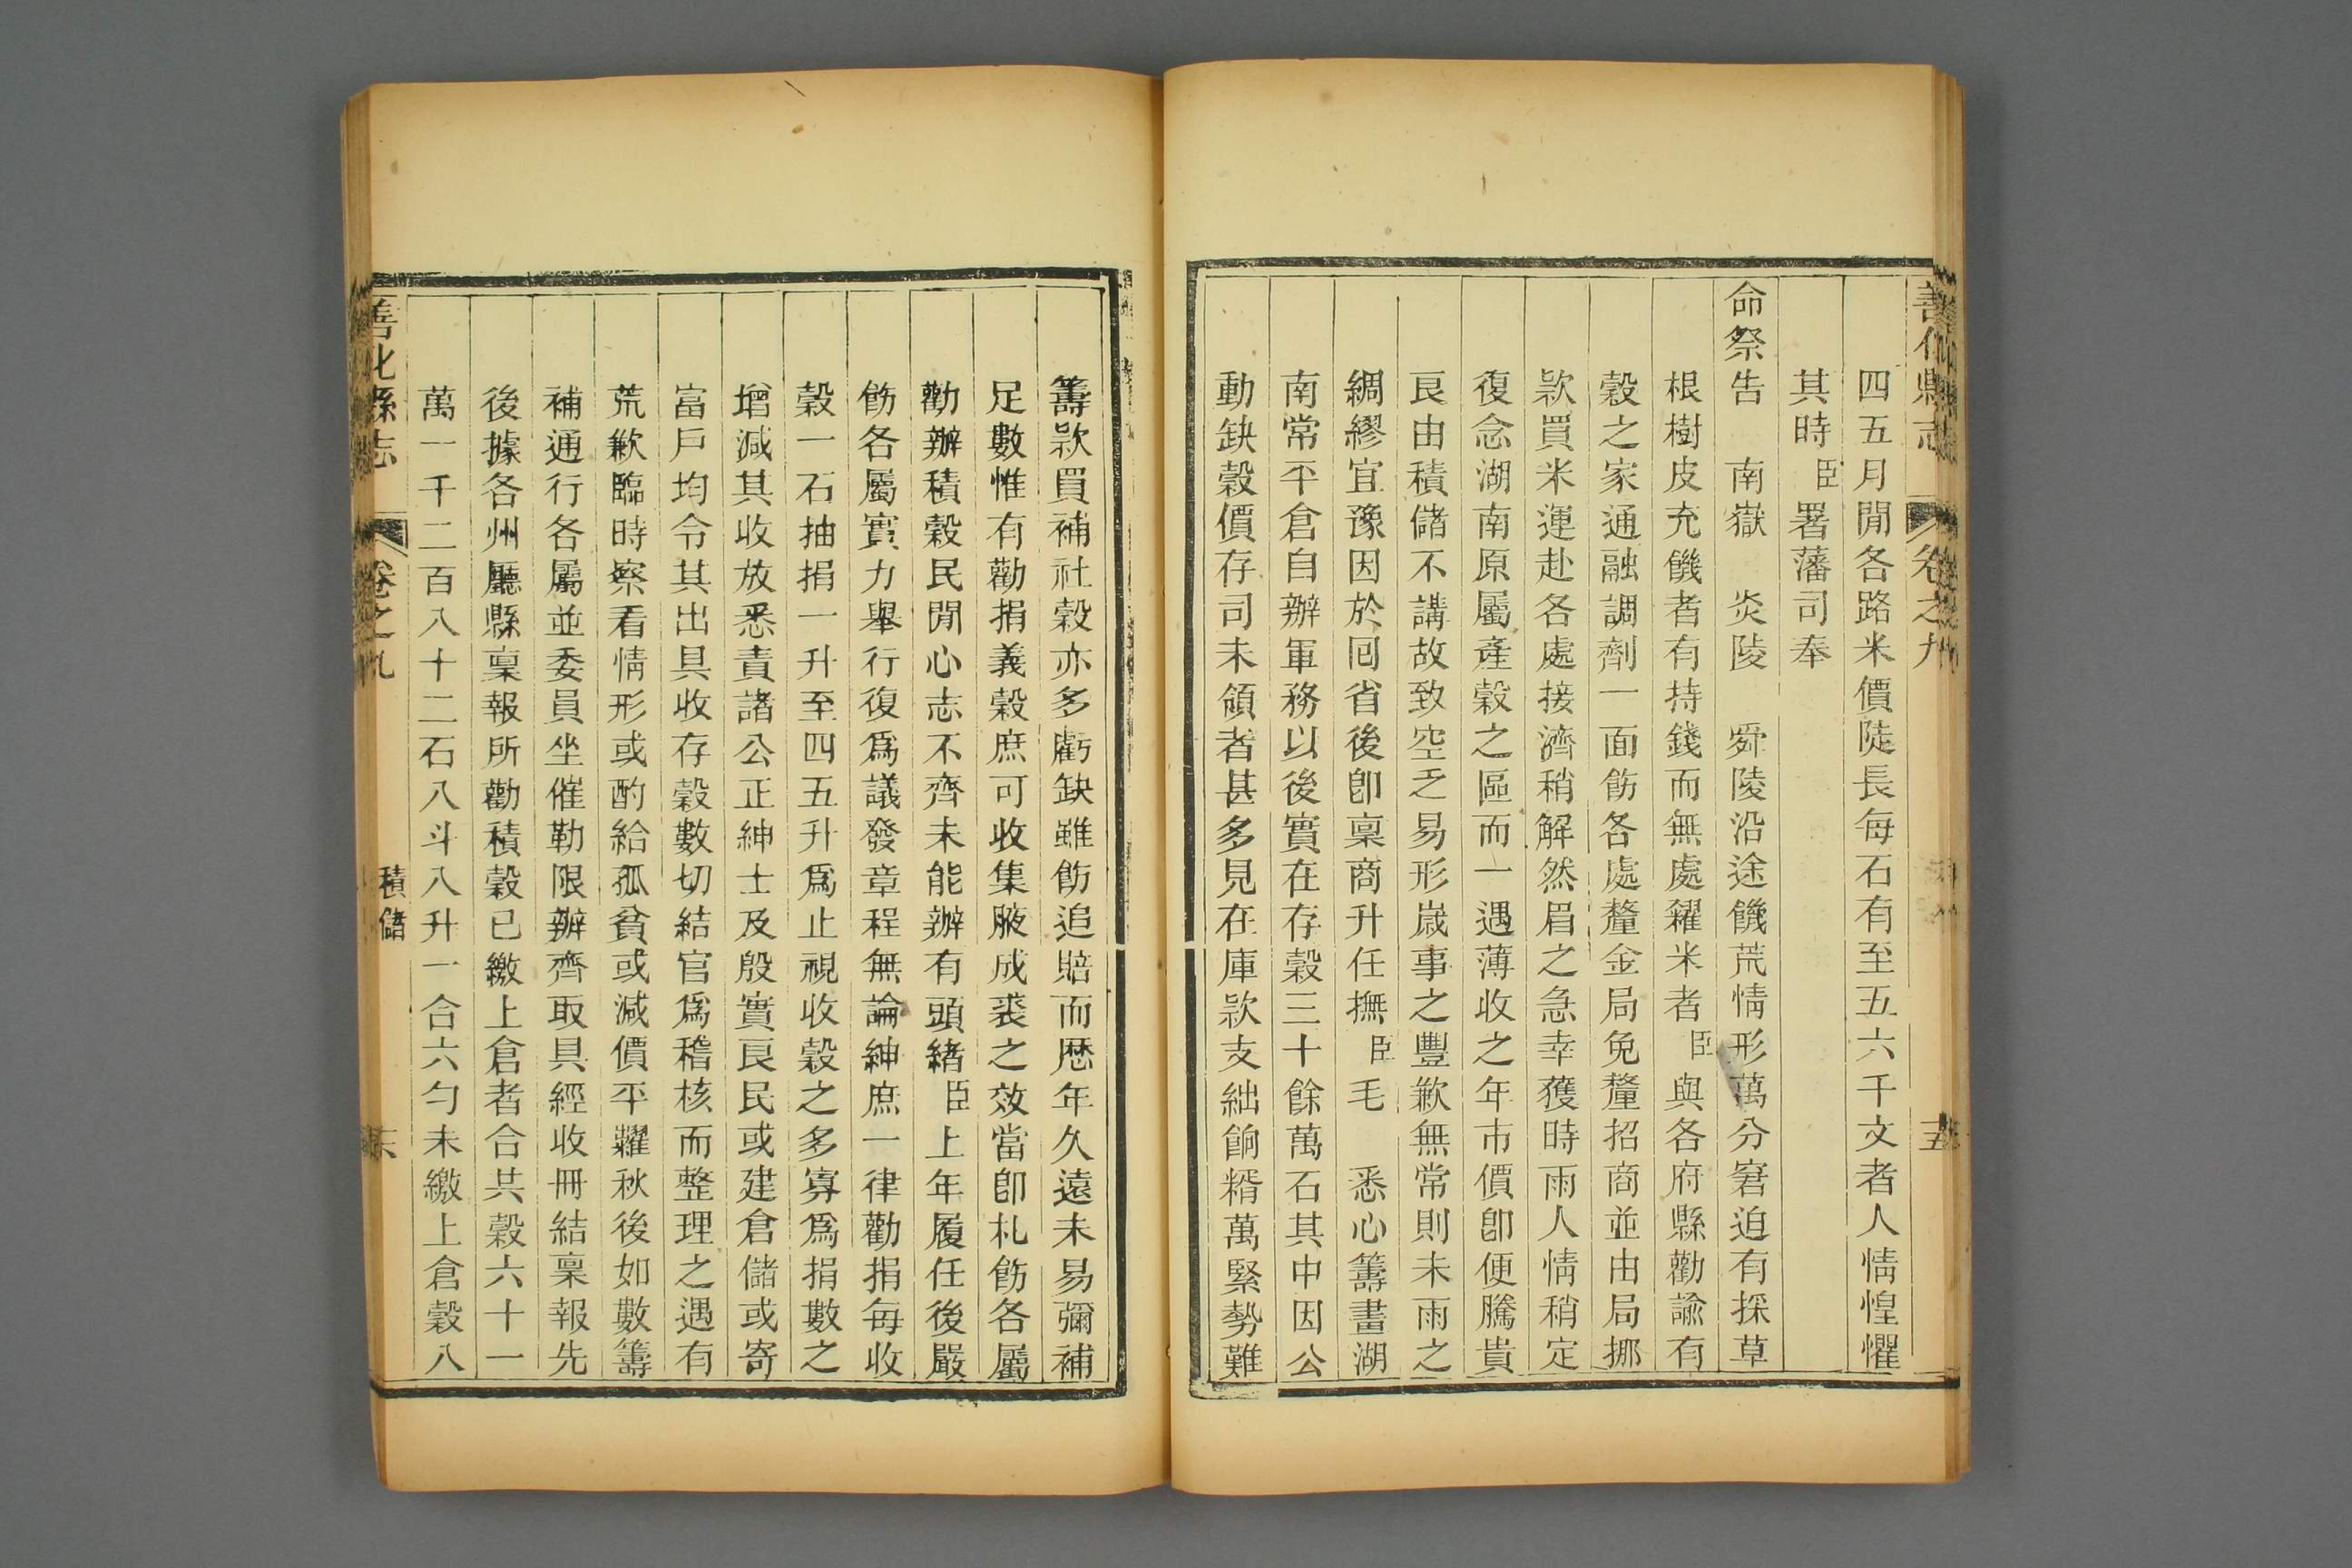 善化縣志 卷之九
四五月閒各路米價陡長每石有至五六千文者人情惶懼
其時臣署藩司奉
命祭告 南嶽 炎陵 舜陵沿途饑荒情形萬分窘迫有採草
根樹皮充饑者有持錢而無處糴米者臣與各府縣勸諭有
穀之家通融調劑一面飭各處釐金局免釐招商並由局挪
欵買米運赴各處接濟稍解然眉之急幸獲時雨人情稍定
復念湖南原屬產穀之區而一遇薄收之年市價卽便騰貴
良由積儲不講故致空乏易形歲事之豐歉無常則未雨之
綢繆宜豫因於囘省後卽稟商升任撫臣毛 悉心籌畫湖
南常平倉自辦軍務以後實在存穀三十餘萬石其中因公
動缺穀價存司未領者甚多見在庫欵支絀餉糈萬緊勢難
籌欵買補社穀亦多虧缺雖飭追賠而歷年久遠未易彌補
足數惟有勸捐義穀庶可收集腋成裘之效當卽札飭各屬
勸辦積穀民閒心志不齊未能辦有頭緒臣上年履任後嚴
飭各屬實力舉行復爲議發章程無論紳庶一律勸捐每收
穀一石抽捐一升至四五升爲止視收穀之多寡爲捐數之
增減其收放悉責諸公正紳士及殷實良民或建倉儲或寄
富戶均令其出具收存穀數切結官爲稽核而整理之遇有
荒歉臨時察看情形或酌給孤貧或減價平糶秋後如數籌
補通行各屬並委員坐催勒限辦齊取具經收冊結稟報先
後據各州廳縣稟報所勸積穀已繳上倉者合共穀六十一
萬一千二百八十二石八斗八升一合六勺未繳上倉穀八
善化縣志 卷之九 積儲